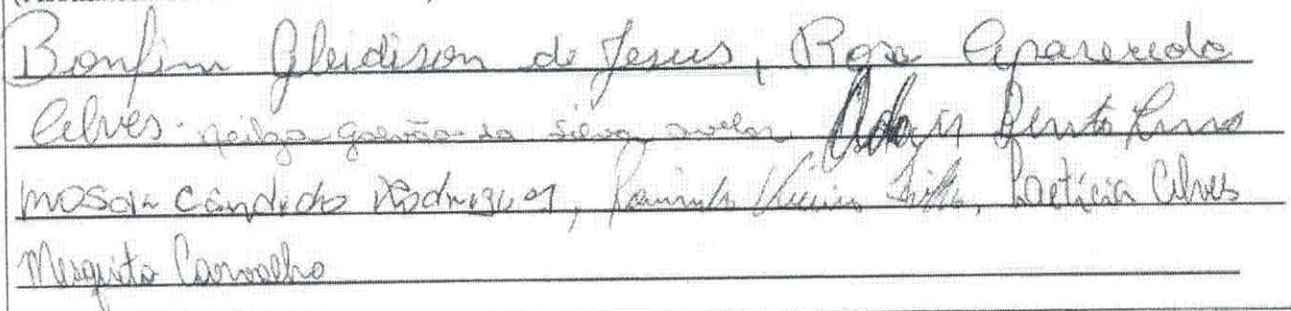 Bonfim Gleidison de Jesus, Rosa Aparecida
Alves. neilza galvão da silva avelar Adan Bento Lima
mosar cândido Rodrigues, Vieira Filho, Laetícia Alves
Mesquita Carvalho